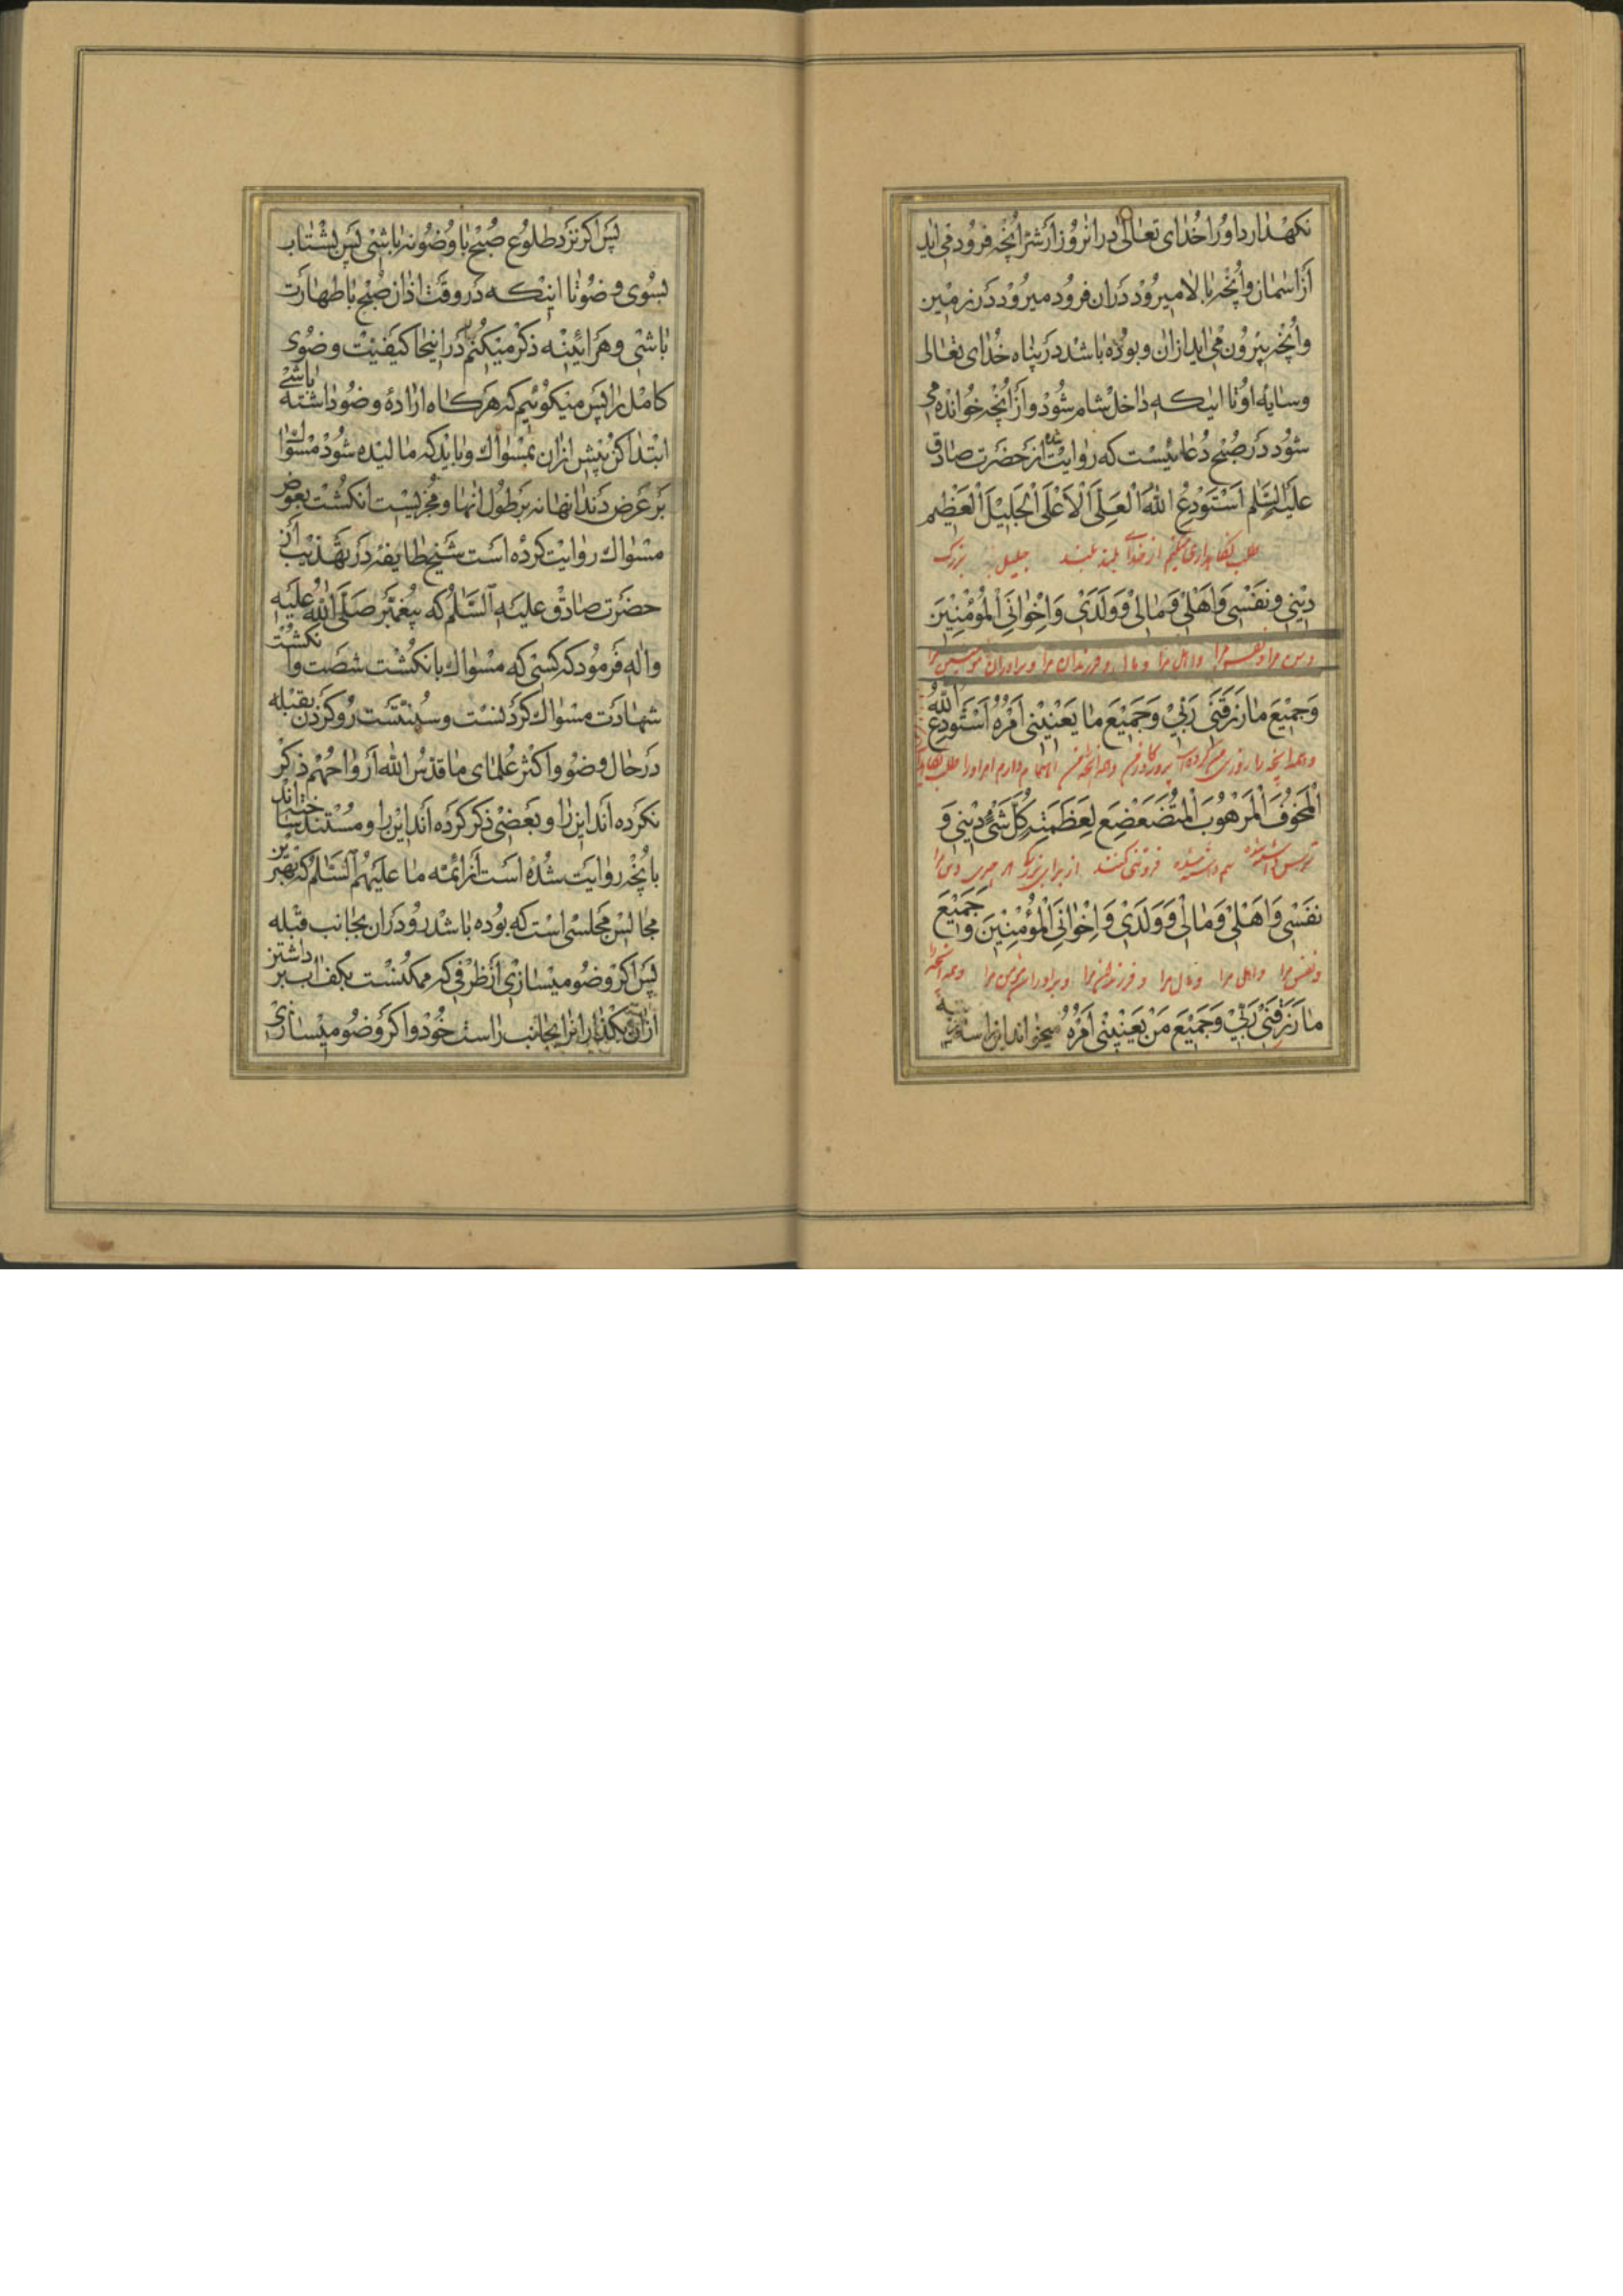 نکهدارد اورا خدای تعالی در انروز از شر انچه فرود می اید
از اسمان و انچه بالا میرود در ان فرود میرود در زمین
و انچه بیرون می اید از ان و بوده باشد در پناه خدای تعالی
و سایه او تا اینکه داخل شام شود و از انچه خوانده می
شود در صبح دعائیست که روایت شده از حضرت صادق
علیه السلام اَسْتَوْدِعُ اللهَ الْعَلِیَّ الْاَعْلَی الْجَلِیلَ الْعَظِیمَ
طلب نکاهداری میکنم از خدای بلند بلند جلیل بزرک
دِینِی وَنَفْسِی وَاَهْلِی وَمَالِی وَوَلَدِی وَاِخْوَانِیَ الْمُؤْمِنِینَ
دین مرا و نفس مرا و اهل مرا و مال و فرزندان مرا و برادران مومنین مرا
وَجَمِیعَ مَا رَزَقَنِی رَبِّی وَجَمِیعَ مَا یَعْنِینِی اَمْرُهُ اَسْتَوْدِعُ اللهَ
و همه انچه را روزی من کرده است پروردکار من و همه انچه من اهتمام دارم امر او را طلب
الْمَخُوفَ الْمَرْهُوبَ الْمُتَضَعْضِعَ لِعَظَمَتِهِ کُلُّ شَیْءٍ دِینِی وَ
ترس فروتنی کننده از برای بزرکی هر چیزی دین مرا
نَفْسِی وَاَهْلِی وَمَالِی وَوَلَدِی وَاِخْوَانِیَ الْمُؤْمِنِینَ وَجَمِیعَ
و نفس مرا و اهل مرا و مال مرا و فرزندان مرا و برادران مومن مرا و همه انچه
مَا رَزَقَنِی رَبِّی وَجَمِیعَ مَنْ یَعْنِینِی اَمْرُهُ میخواند این را سه مرتبه
پس اکر نزد طلوع صبح با وضو نه باشی پس بشتاب
بسوی وضو تا اینکه در وقت اذان صبح با طهارت
باشی و هر اینه ذکر میکنم در اینجا کیفیت وضوی
کامل را پس میکوئیم که هر کاه اراده وضو داشته باشی
ابتدا کن پیش از ان بمسواک و باید که مالیده شود مسواک
بر عرض دندانها نه بر طول انها و مجزیست انکشت بعوض
مسواک روایت کرده است شیخ طایفه در تهذیب از
حضرت صادق علیه السلام که پیغمبر صلی الله علیه
واله فرمود که کسی که مسواک با نکشت شصت و انکشت
شهادت مسواک کردنست و سنتست رو کردن بقبله
در حال وضو و اکثر علمای ما قدس الله ارواحهم ذکر
نکرده اند این را و بعضی ذکر کرده اند این را و مستند ساخته اند
بانچه روایت شده است از ائمه ما علیهم السلام که بهترین
مجالس مجلسی است که بوده باشد رو در ان بجانب قبله
پس اکر وضو میسازی از ظرفی که ممکنست بکف اب برداشتن
از ان بکذار انرا بجانب راست خود و اکر وضو میسازی